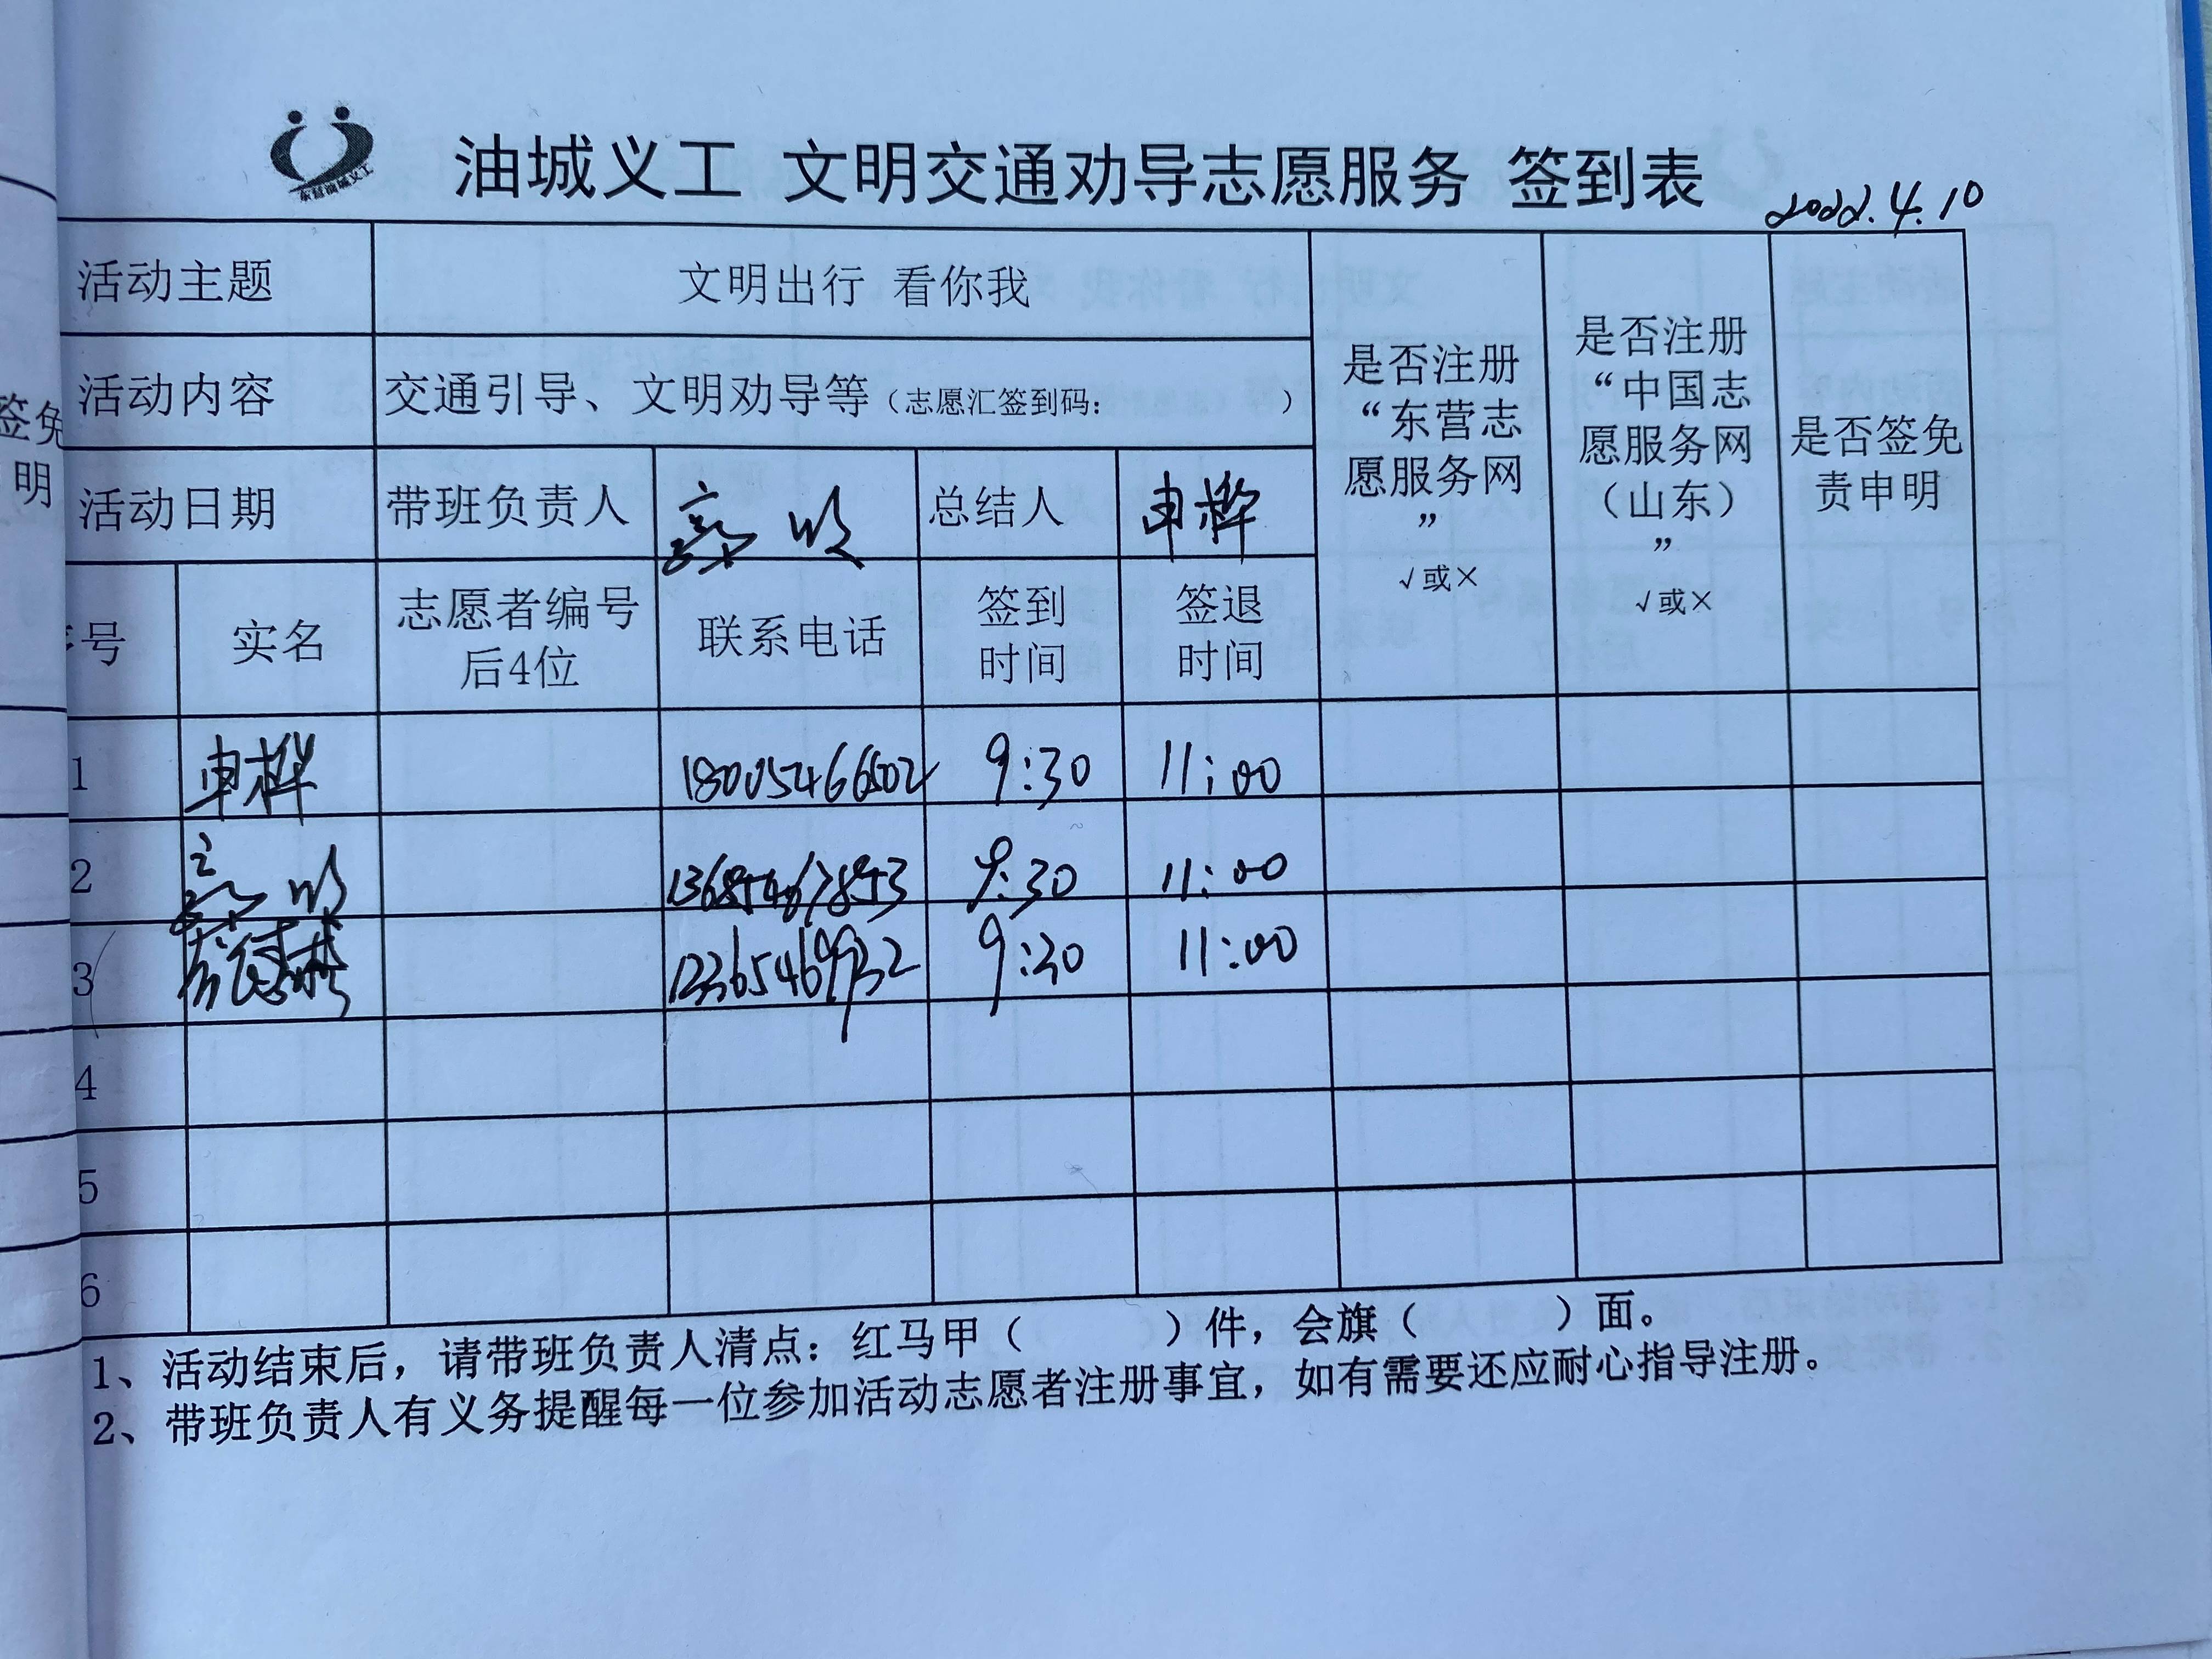 东营油城义工
油城义工 文明交通劝导志愿服务 签到表
2022.4.10
签免
明
活动主题 文明出行 看你我
活动内容 交通引导、文明劝导等（志愿汇签到码： ）
活动日期 带班负责人 总结人 申桦
是否注册
“东营志
愿服务网
”
√或×
是否注册
“中国志
愿服务网
（山东）
”
√或×
是否签免
责申明
号 实名 志愿者编号
后4位
联系电话 签到
时间
签退
时间
1 申桦 18005466502 9:30 11:00
2 9:30 11:00
3 9:30 11:00
4
5
6
1、活动结束后，请带班负责人清点：红马甲（ ）件，会旗（ ）面。
2、带班负责人有义务提醒每一位参加活动志愿者注册事宜，如有需要还应耐心指导注册。